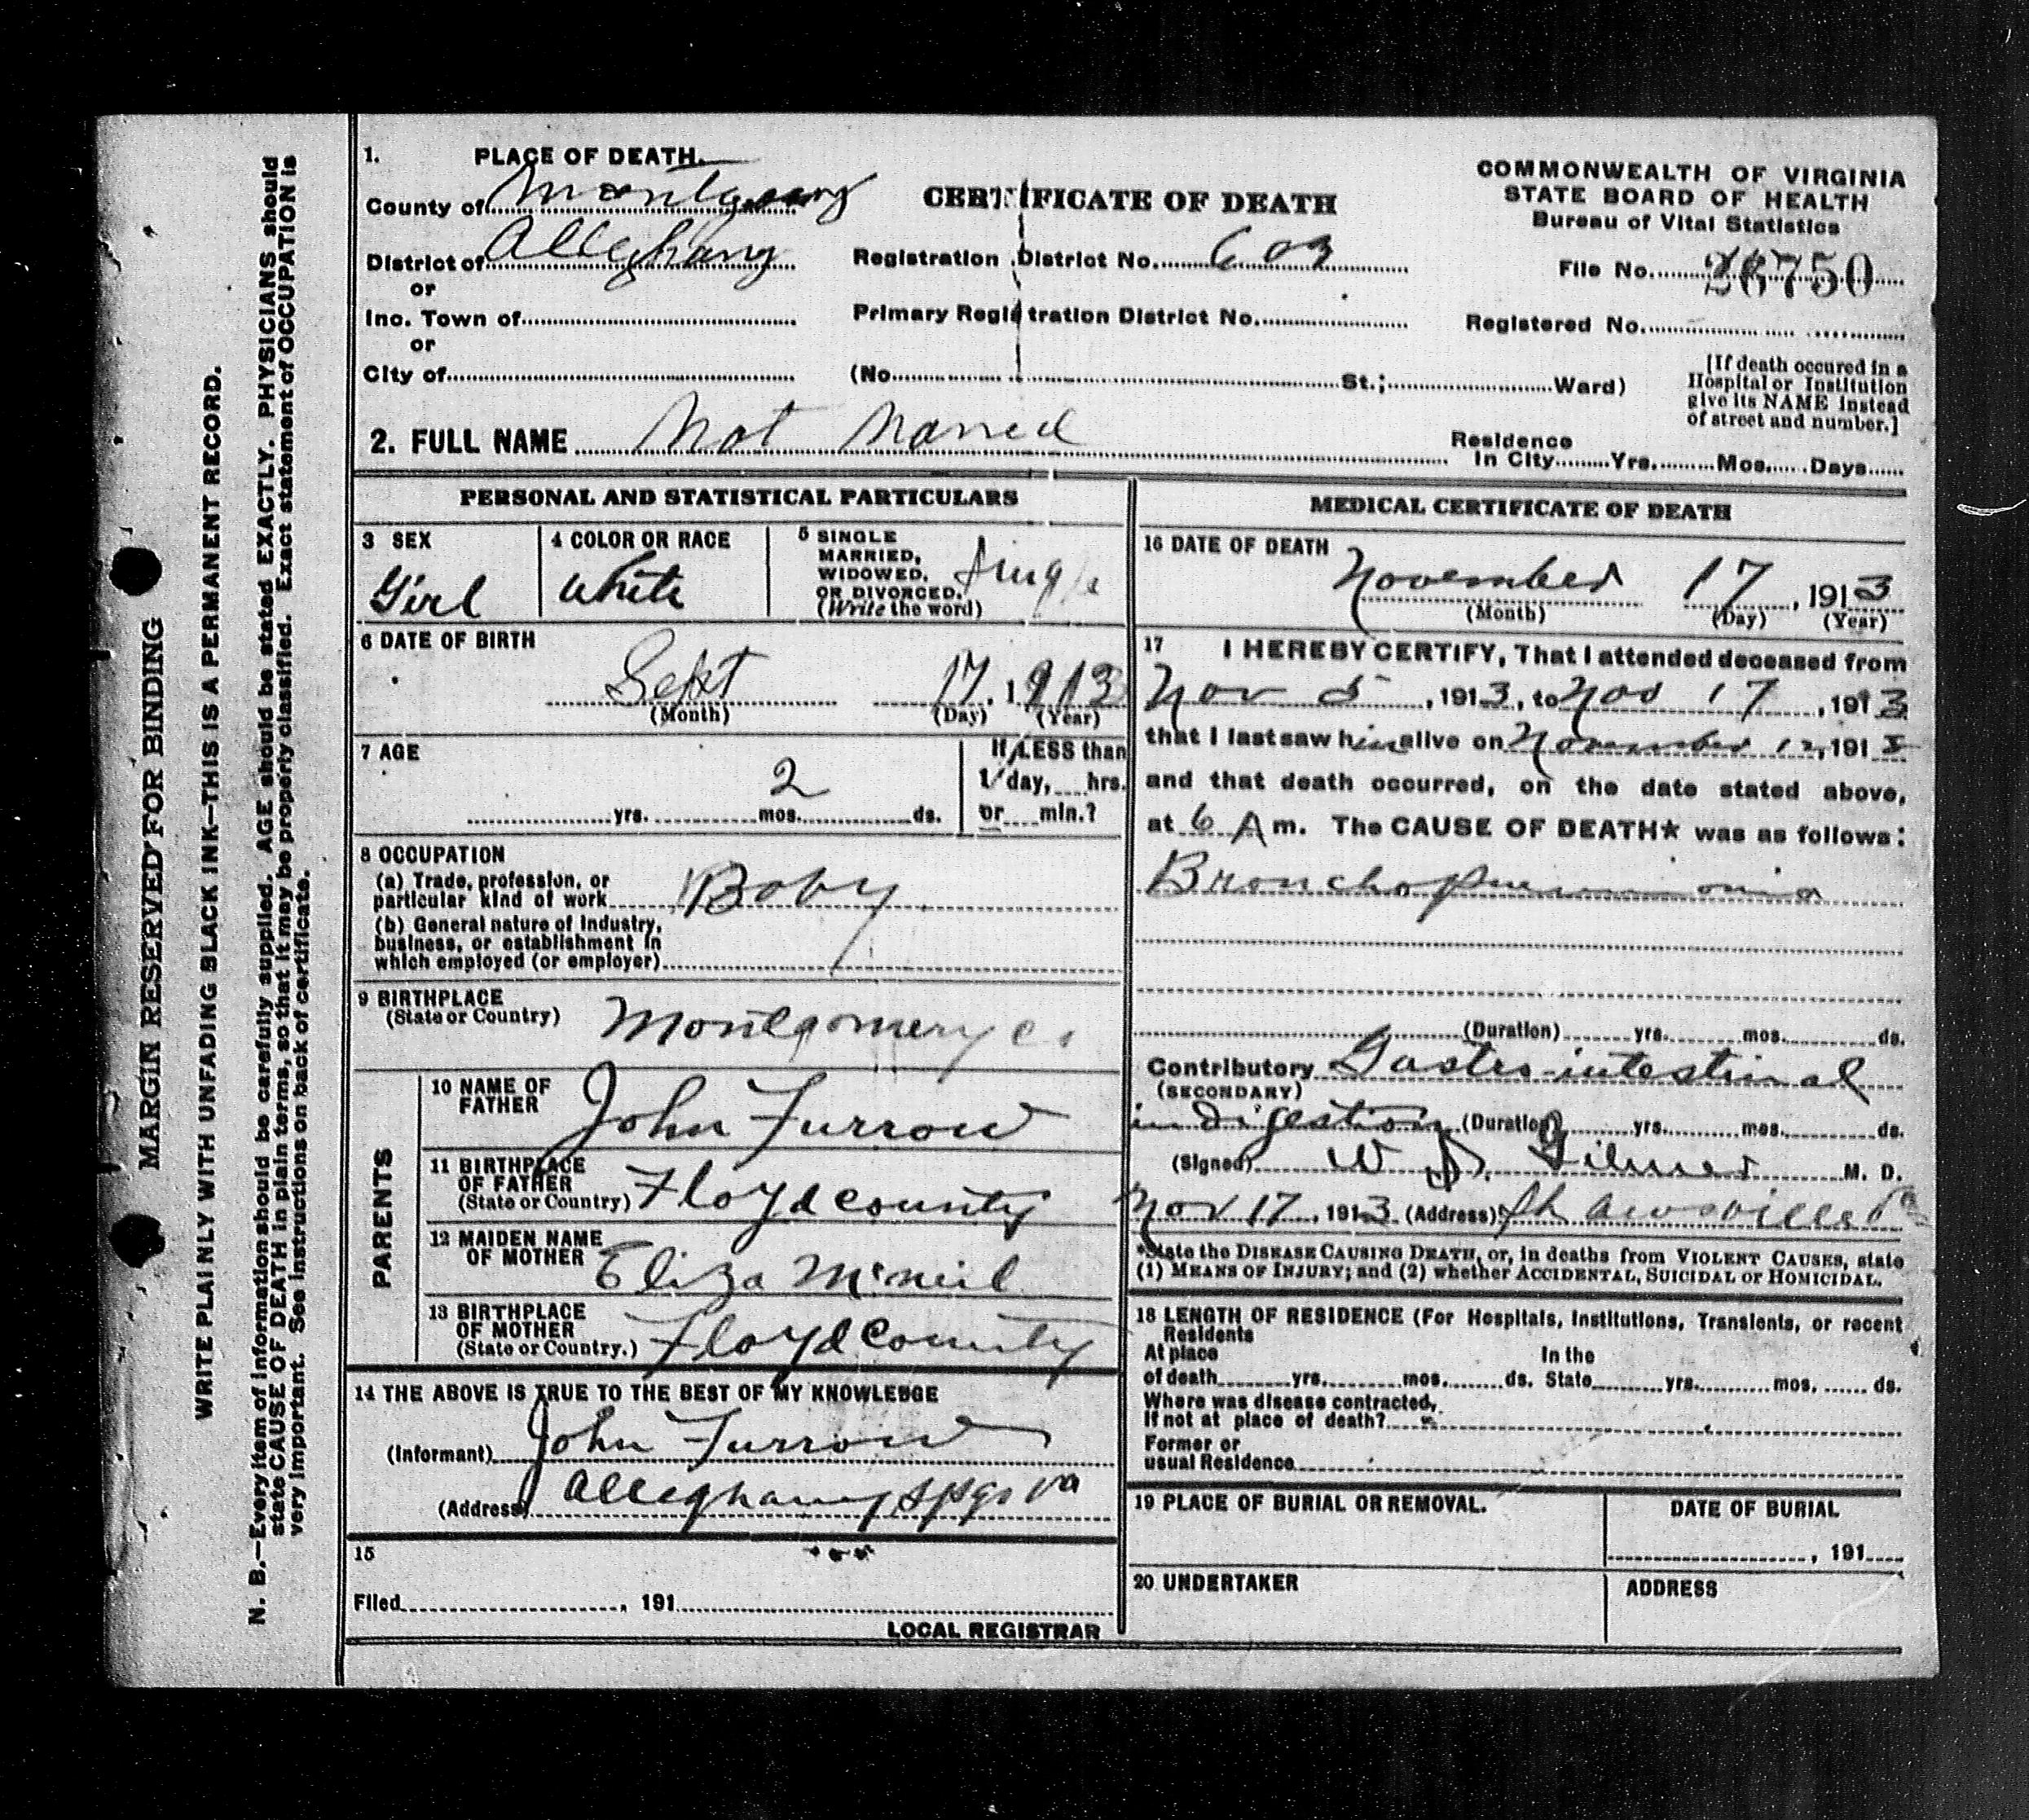 MARGIN RESERVED FOR BINDING
WRITE PLAINLY WITH UNFADING BLACK INK—THIS IS A PERMANENT RECORD.
N. B.—Every item of information should be carefully supplied. AGE should be stated EXACTLY. PHYSICIANS should
state CAUSE OF DEATH in plain terms, so that it may be properly classified. Exact statement of OCCUPATION is
very important. See instructions on back of certificate.
1. PLACE OF DEATH.
County of Montgomery
District of Alleghany
or
Inc. Town of
or
City of
CERTIFICATE OF DEATH
Registration District No. 603
Primary Registration District No.
(No. St.; Ward)
COMMONWEALTH OF VIRGINIA
STATE BOARD OF HEALTH
Bureau of Vital Statistics
File No. 750
Registered No.
[If death occured in a
Hospital or Institution
give its NAME instead
of street and number.]
2. FULL NAME Not Named
Residence
In City Yrs. Mos. Days
PERSONAL AND STATISTICAL PARTICULARS
3 SEX
Girl
4 COLOR OR RACE
White
5 SINGLE
MARRIED,
WIDOWED,
OR DIVORCED.
(Write the word)
Single
6 DATE OF BIRTH
Sept 17, 1913
(Month) (Day) (Year)
7 AGE
2
yrs. mos. ds.
If LESS than
1 day, hrs.
or min.?
8 OCCUPATION
(a) Trade, profession, or
particular kind of work Baby
(b) General nature of Industry,
business, or establishment in
which employed (or employer)
9 BIRTHPLACE
(State or Country) Montgomery Co
PARENTS
10 NAME OF
FATHER John Furrow
11 BIRTHPLACE
OF FATHER
(State or Country) Floyd County
12 MAIDEN NAME
OF MOTHER Eliza McNeil
13 BIRTHPLACE
OF MOTHER
(State or Country.) Floyd County
14 THE ABOVE IS TRUE TO THE BEST OF MY KNOWLEDGE
(Informant) John Furrow
(Address) Alleghany Spgs Va
15
Filed , 191
LOCAL REGISTRAR
MEDICAL CERTIFICATE OF DEATH
16 DATE OF DEATH
November 17, 1913
(Month) (Day) (Year)
17 I HEREBY CERTIFY, That I attended deceased from
Nov 5, 1913, to Nov 17, 1913
that I last saw him alive on November , 191
and that death occurred, on the date stated above,
at 6 A m. The CAUSE OF DEATH* was as follows:
Bronchopneumonia
(Duration) yrs. mos. ds.
Contributory Gastro-intestinal
(SECONDARY)
indigestion (Duration) yrs. mos. ds.
(Signed) W Gilmer M. D.
Nov 17, 1913 (Address) Shawsville Va
*State the DISEASE CAUSING DEATH, or, in deaths from VIOLENT CAUSES, state
(1) MEANS OF INJURY; and (2) whether ACCIDENTAL, SUICIDAL or HOMICIDAL.
18 LENGTH OF RESIDENCE (For Hospitals, Institutions, Transients, or recent
Residents
At place In the
of death yrs. mos. ds. State yrs. mos. ds.
Where was disease contracted,
If not at place of death?
Former or
usual Residence
19 PLACE OF BURIAL OR REMOVAL.
DATE OF BURIAL
, 191
20 UNDERTAKER
ADDRESS